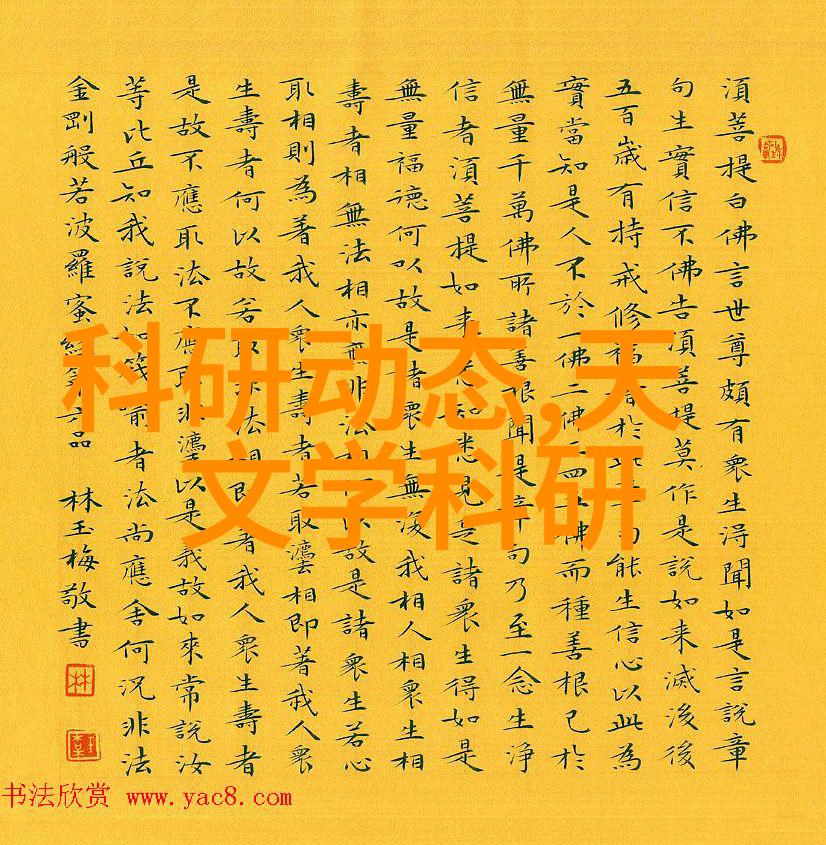 須菩提白佛言世尊頗有衆生得聞如是言說章
句生實信不佛告須菩提莫作是說如来滅後後
五百歲有持戒修福者於此章句能生信心以此為
實當知是人不於一佛二佛三四五佛而種善根已於
無量千萬佛所諸善根聞是章句乃至一念生淨
信者須菩提如来悉知悉見是諸衆生得如是
無量福德何以故是諸衆生無復我相人相衆生相
壽者相無法相亦無非法相何以故是諸衆生若心
取相則為著我人衆生壽者若取灋相即著我人衆
生壽者何以故若取非法相即著我人衆生壽者
是故不應取法不應取非灋以是義故如來常說汝
等比丘知我說法如筏喻者法尚應舍何況非法
金剛般若波羅蜜經第六品 林玉梅敬書
林
科研动态,天
文学科研
书法欣赏 www.yac8.com